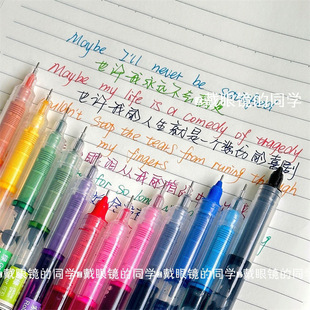 Maybe I'll never be
戴眼镜的同学
也许我永远不会
Maybe my life is a comedy of tragedy
也许我的人生就是一个悲伤的喜剧
Couldn't stop the tears from runing through
my fingers
for so long
戴眼镜的同学 戴眼镜的同学 戴眼镜的同学